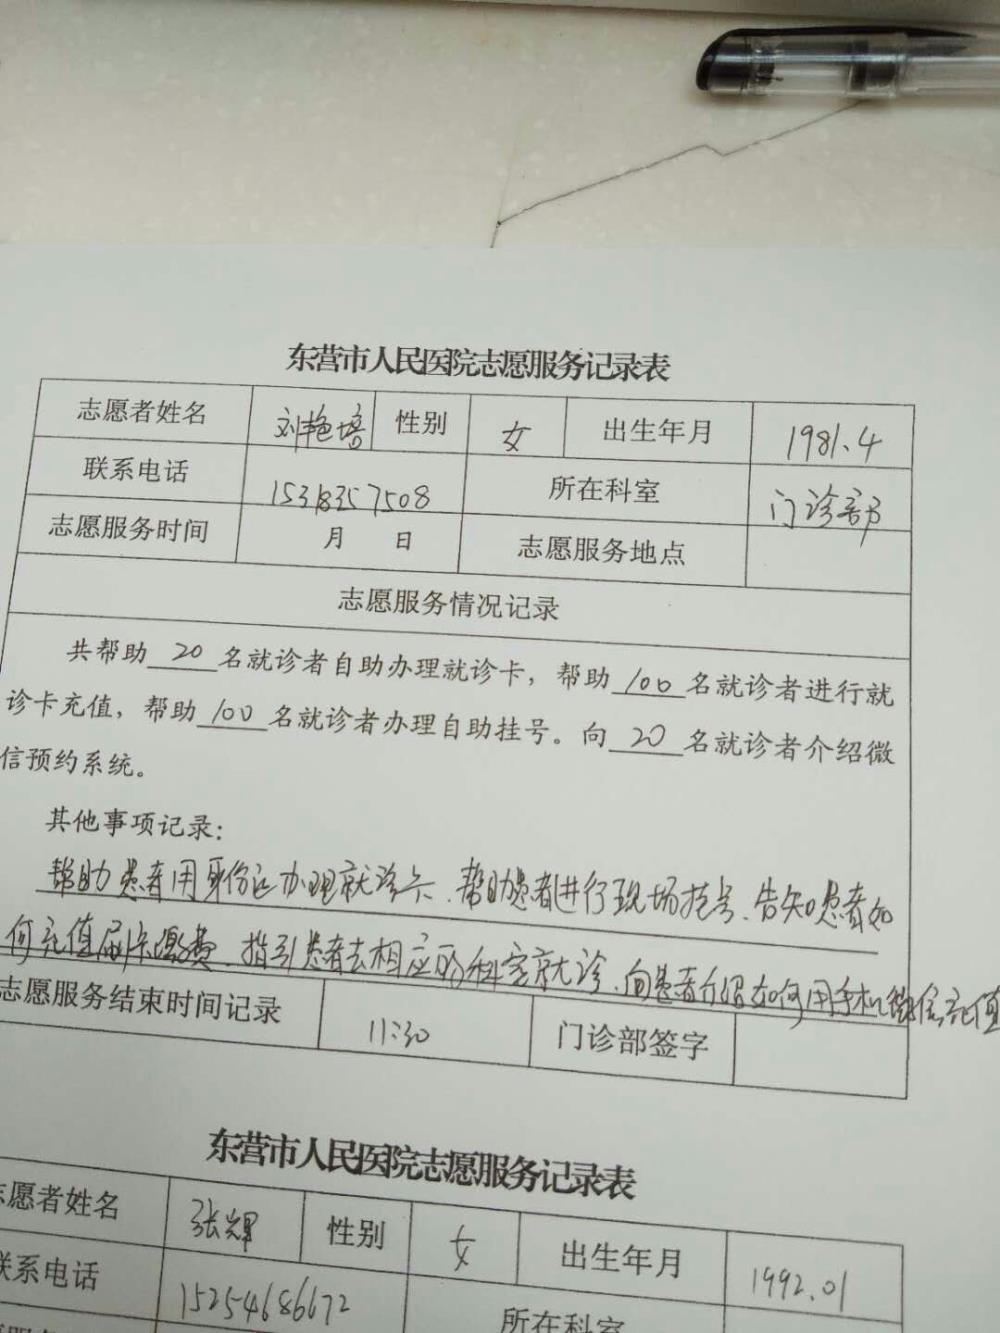 东营市人民医院志愿服务记录表
志愿者姓名 刘艳培 性别 女 出生年月 1981.4
联系电话 15318357508 所在科室 门诊部
志愿服务时间 月 日 志愿服务地点
志愿服务情况记录
共帮助 20 名就诊者自助办理就诊卡，帮助 100 名就诊者进行就
诊卡充值，帮助 100 名就诊者办理自助挂号。向 20 名就诊者介绍微
信预约系统。
其他事项记录：
帮助患者用身份证办理就诊卡、帮助患者进行现场挂号、告知患者如
何充值刷卡缴费、指引患者去相应的科室就诊、向患者介绍如何用手机微信充值
志愿服务结束时间记录 11:30 门诊部签字
东营市人民医院志愿服务记录表
志愿者姓名 张辉 性别 女 出生年月 1992.01
联系电话 15254686672 所在科室